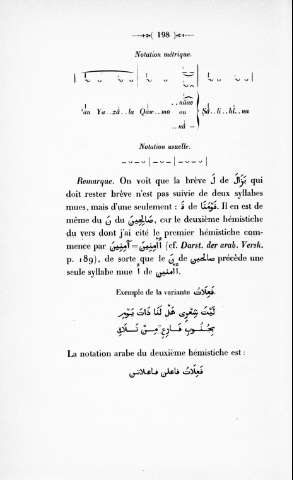 198
Notation métrique.
Notation usuelle.
Remarque. On voit que la brève لُ de يَزَالُ qui
doit rester brève n'est pas suivie de deux syllabes
mues, mais d'une seulement : قَ de قَوْمُنَا. Il en est de
même du نَ du صَالِحِينَ, car le deuxième hémistiche
du vers dont j'ai cité le premier hémistiche com-
mence par آمِنِينَ = أَامِنِينَ (cf. Darst. der arab. Versk.
p. 189), de sorte que le نَ de صالحين précède une
seule syllabe mue أَ de أَامنين.
Exemple de la variante فَعِلَاتُ
لَيْتَ شِعْرِى هَلْ لَنَا ذَاتَ يَوْمٍ
بِجُنُوبِ فَارِعٍ مِنْ تَلَاقِ
La notation arabe du deuxième hémistiche est :
فَعِلَاتُ فاعلن فاعلاتن